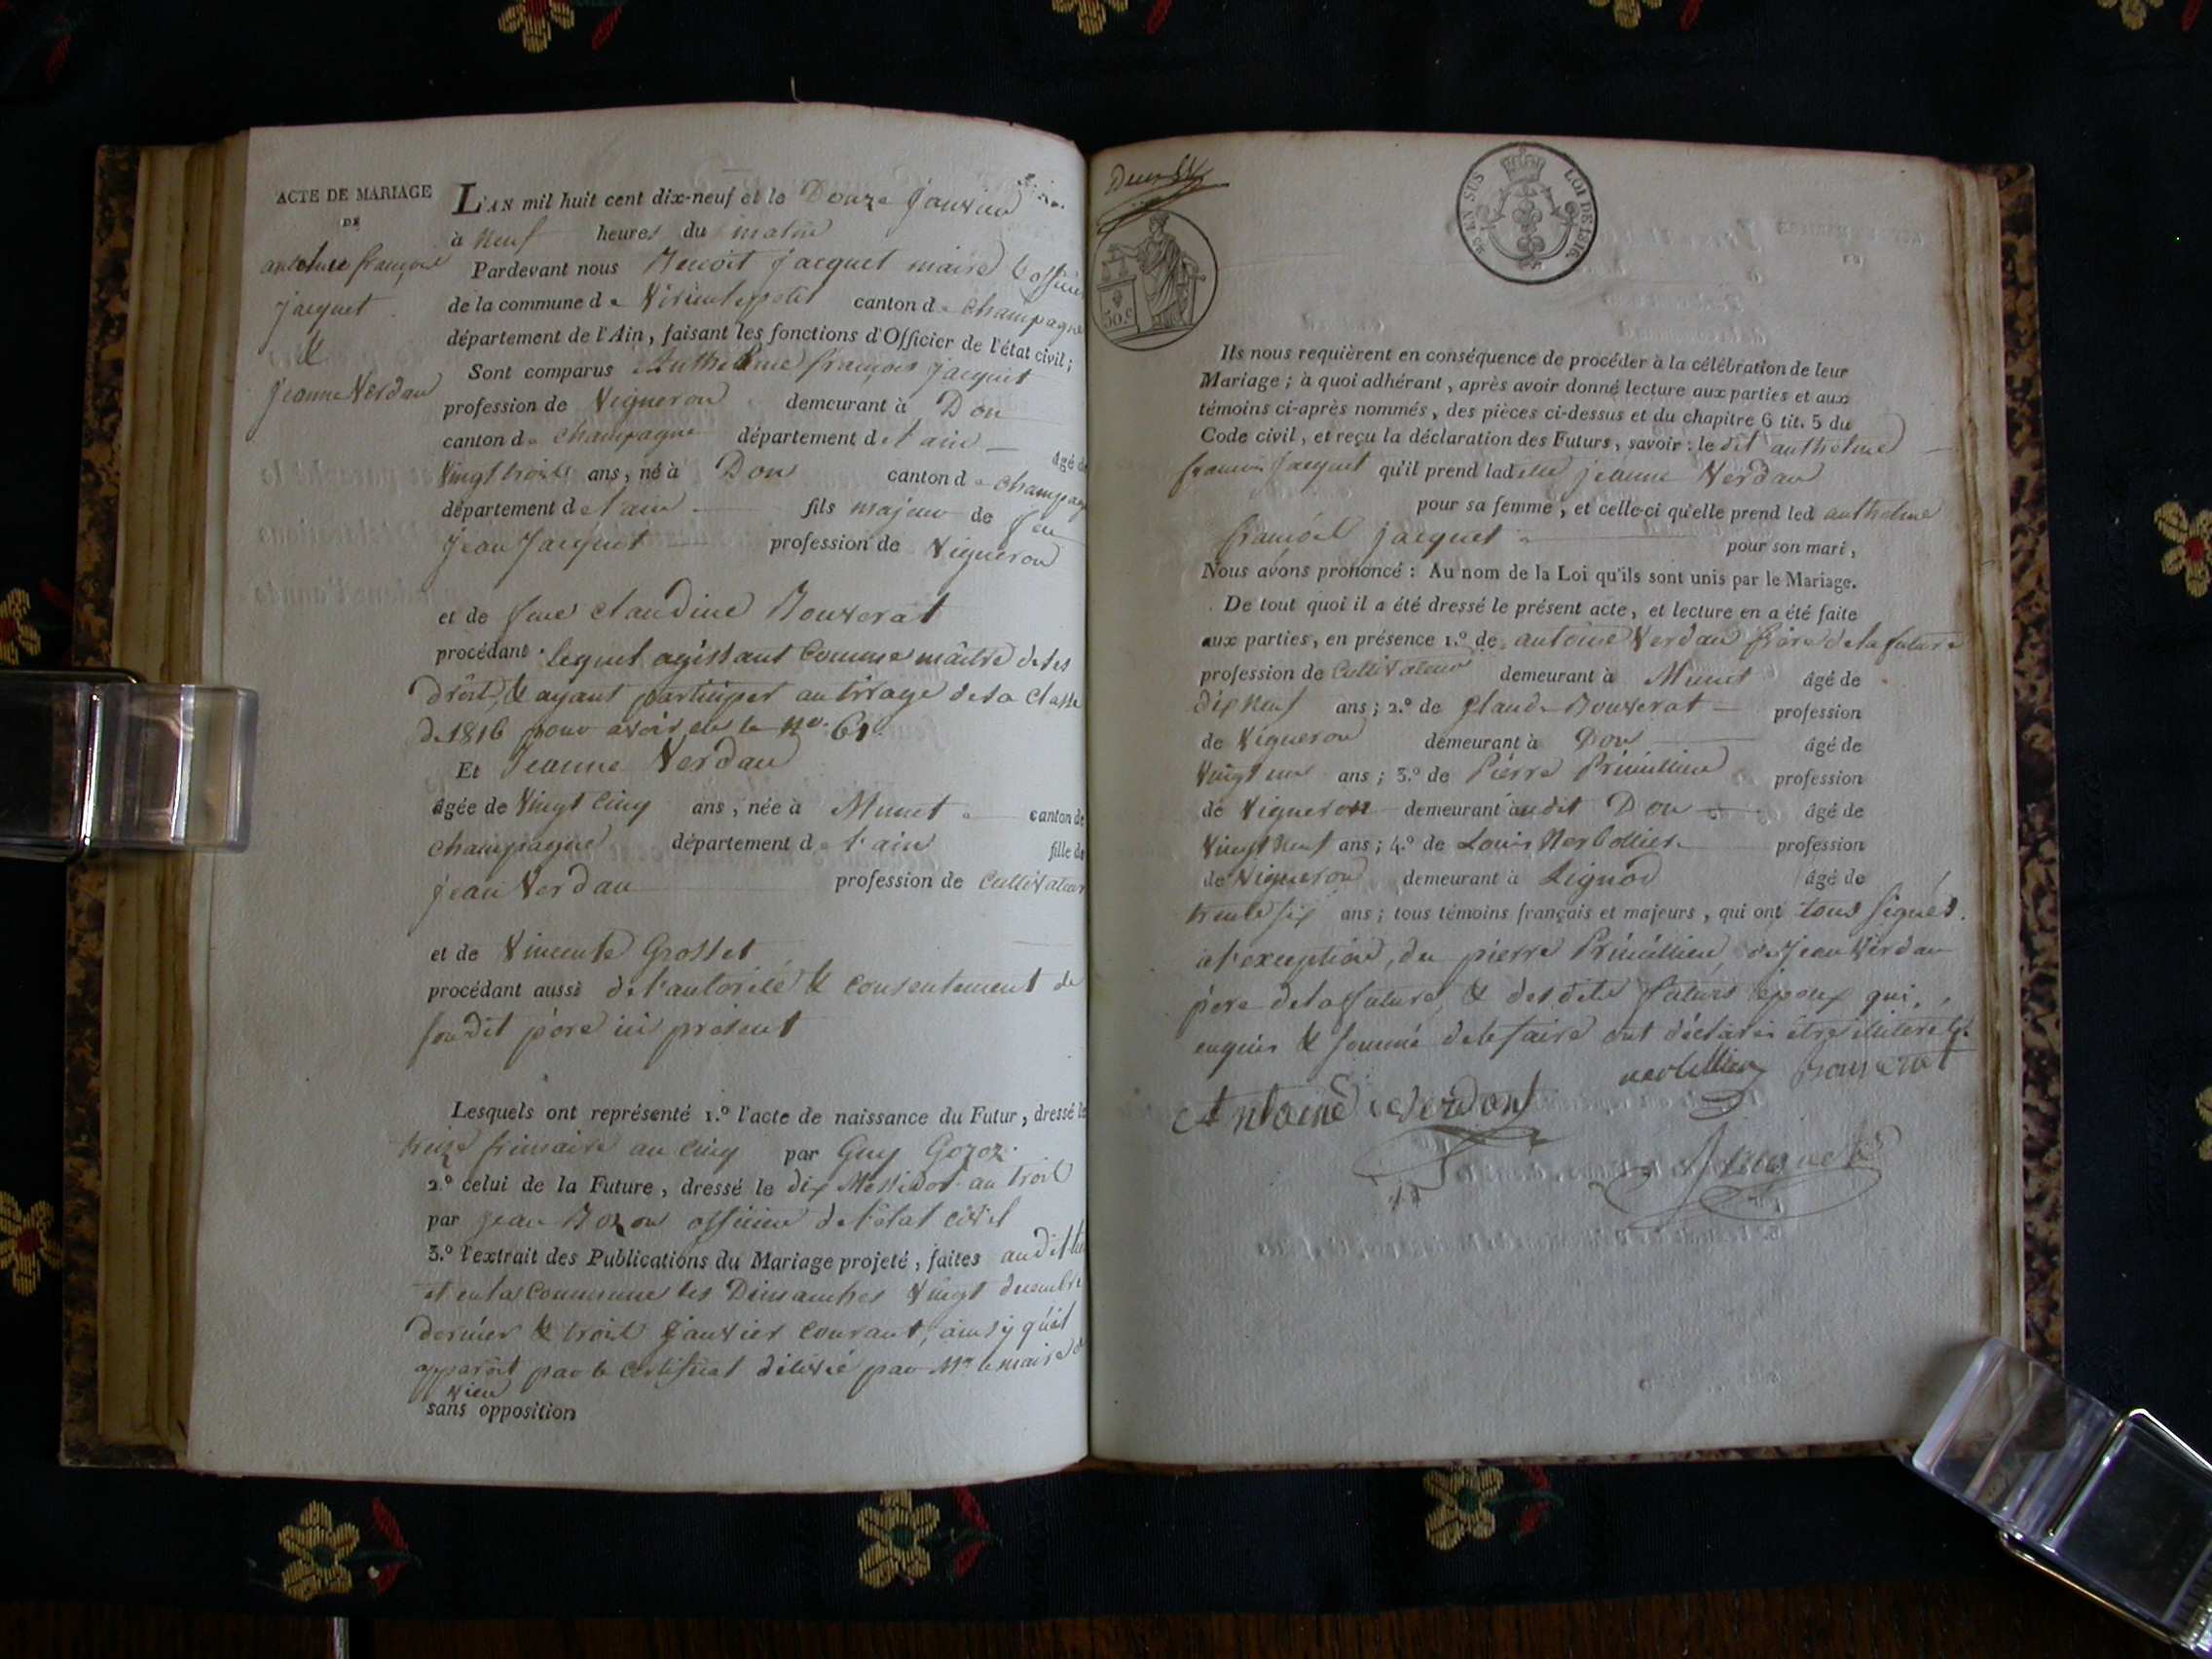 ACTE DE MARIAGE
DE
anthelme françois
jacquet
&
jeanne Verdau
L'AN mil huit cent dix-neuf et le Douze janvier
à neuf heures du matin
Pardevant nous Benoit jacquet maire & officier
de la commune de Virieu le petit canton de champagne
département de l'Ain, faisant les fonctions d'Officier de l'état civil;
Sont comparus Anthelme françois jacquet
profession de Vigneron demeurant à Don
canton de champagne département de l'ain âgé de
Vingt trois ans, né à Don canton de champagne
département de l'ain fils majeur de feu
jean jacquet profession de Vigneron
et de feue claudine Bouverat
procédant lequel agissant comme maître de ses
droits, & ayant participer au tirage de sa classe
de 1816 pour avoir eu le no. 61
Et Jeanne Verdau
âgée de Vingt cinq ans, née à Munet canton de
champagne département de l'ain fille de
jean Verdau profession de cultivateur
et de Vincente Grosset
procédant aussi de l'autorité & consentement de
son dit père ici présent
Lesquels ont représenté 1.º l'acte de naissance du Futur, dressé le
treize frimaire an cinq par Guy Gozoz
2.º celui de la Future, dressé le dix Messidor an trois
par jean Bozon officier de l'état civil
3.º l'extrait des Publications du Mariage projeté, faites audit lieu
et en la commune les Dimanches Vingt décembre
dernier & trois janvier courant, ainsy qu'il
apparoit par le certificat délivré par Mr le maire de
Vieu
sans opposition
EN SUS LOI DE 1816.
50.c
Ils nous requièrent en conséquence de procéder à la célébration de leur
Mariage; à quoi adhérant, après avoir donné lecture aux parties et aux
témoins ci-après nommés, des pièces ci-dessus et du chapitre 6 tit. 5 du
Code civil, et reçu la déclaration des Futurs, savoir: le dit anthelme
francois jacquet qu'il prend ladite jeanne Verdau
pour sa femme, et celle-ci qu'elle prend led anthelme
francois jacquet pour son mari,
Nous avons prononcé: Au nom de la Loi qu'ils sont unis par le Mariage.
De tout quoi il a été dressé le présent acte, et lecture en a été faite
aux parties, en présence 1.º de antoine Verdau frère de la future
profession de Cultivateur demeurant à Munet âgé de
dix neuf ans; 2.º de Claude Bouverat profession
de Vigneron demeurant à Don âgé de
Vingt un ans; 3.º de Pierre Priméllieu profession
de Vigneron demeurant audit Don âgé de
Vingt neuf ans; 4.º de Louis Verbollier profession
de Vigneron demeurant à Lignod âgé de
trente six ans; tous témoins français et majeurs, qui ont tous signés.
a l'exception, du pierre Priméllieu, de jean Verdau
père de la future, & des dits futurs époux qui,
enquis & sommé de le faire ont déclarés être illiterés.
verbollier Bouverat
Antoine Verdont
Jacquet